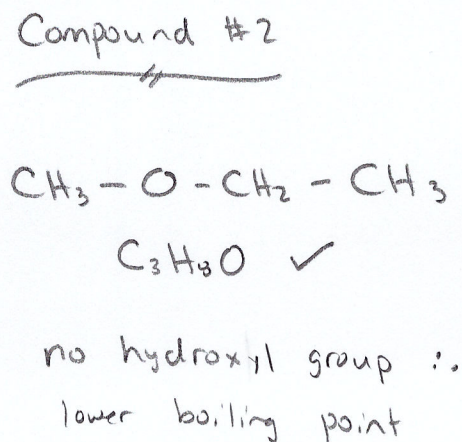 Compound #2
CH₃ – O – CH₂ – CH₃
C₃H₈O ✓
no hydroxyl group ∴
lower boiling point